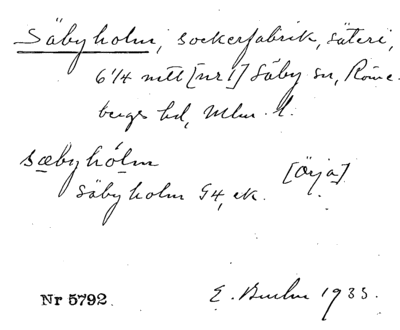 Säbyholm, sockerfabrik, säteri,
6 1/4 mtl [nr 1] Säby sn, Röne-
bergs hd, Mlm. l.
sæbyhólm [Örja]
Säbyholm G4, ek.
Nr 5792. E. 1933.